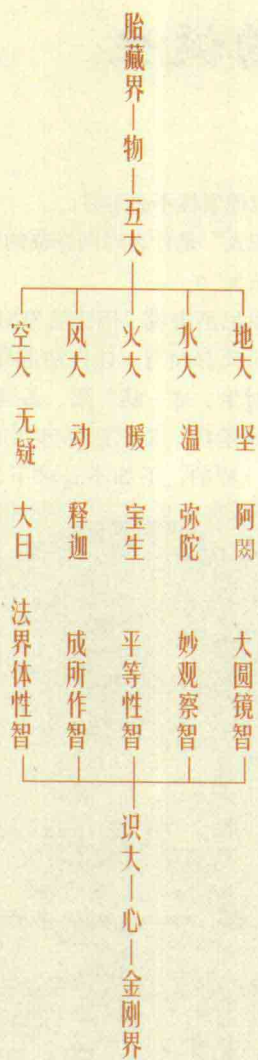 胎藏界—物—五大
地大 坚 阿閦 大圆镜智
水大 温 弥陀 妙观察智
火大 暖 宝生 平等性智
风大 动 释迦 成所作智
空大 无疑 大日 法界体性智
识大—心—金刚界